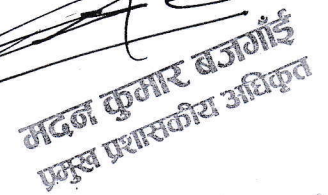 मदन कुमार बजगाँई
प्रमुख प्रशासकीय अधिकृत